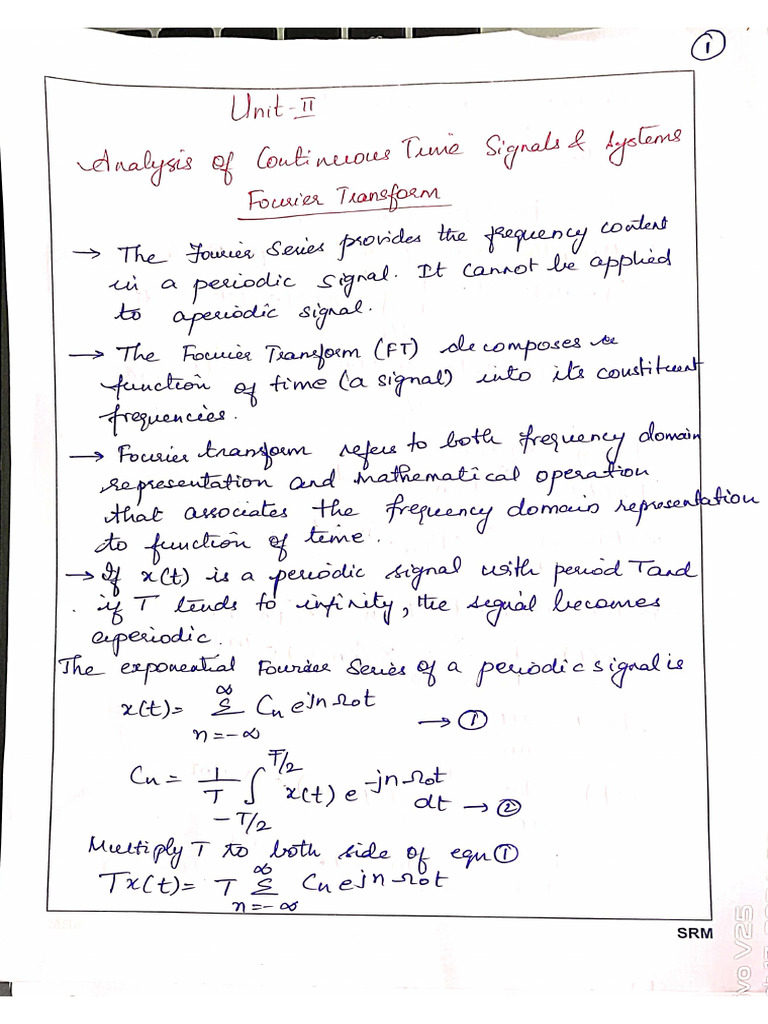 1
Unit-II
Analysis of Continuous Time Signals & Systems
Fourier Transform
→ The Fourier Series provides the frequency content
in a periodic signal. It cannot be applied
to aperiodic signal.
→ The Fourier Transform (FT) decomposes
function of time (a signal) into its constituent
frequencies.
→ Fourier transform refers to both frequency domain
representation and mathematical operation
that associates the frequency domain representation
to function of time.
→ If x(t) is a periodic signal with period T and
if T tends to infinity, the signal becomes
aperiodic.
The exponential Fourier Series of a periodic signal is
x(t) = ∞ Σ n=-∞ Cn e^jnΩ0t → ①
Cn = 1/T ∫_-T/2^T/2 x(t) e^-jnΩ0t dt → ②
Multiply T to both side of equn ①
Tx(t) = T ∞ Σ n=-∞ Cn e^jnΩ0t
SRM
vivo V25